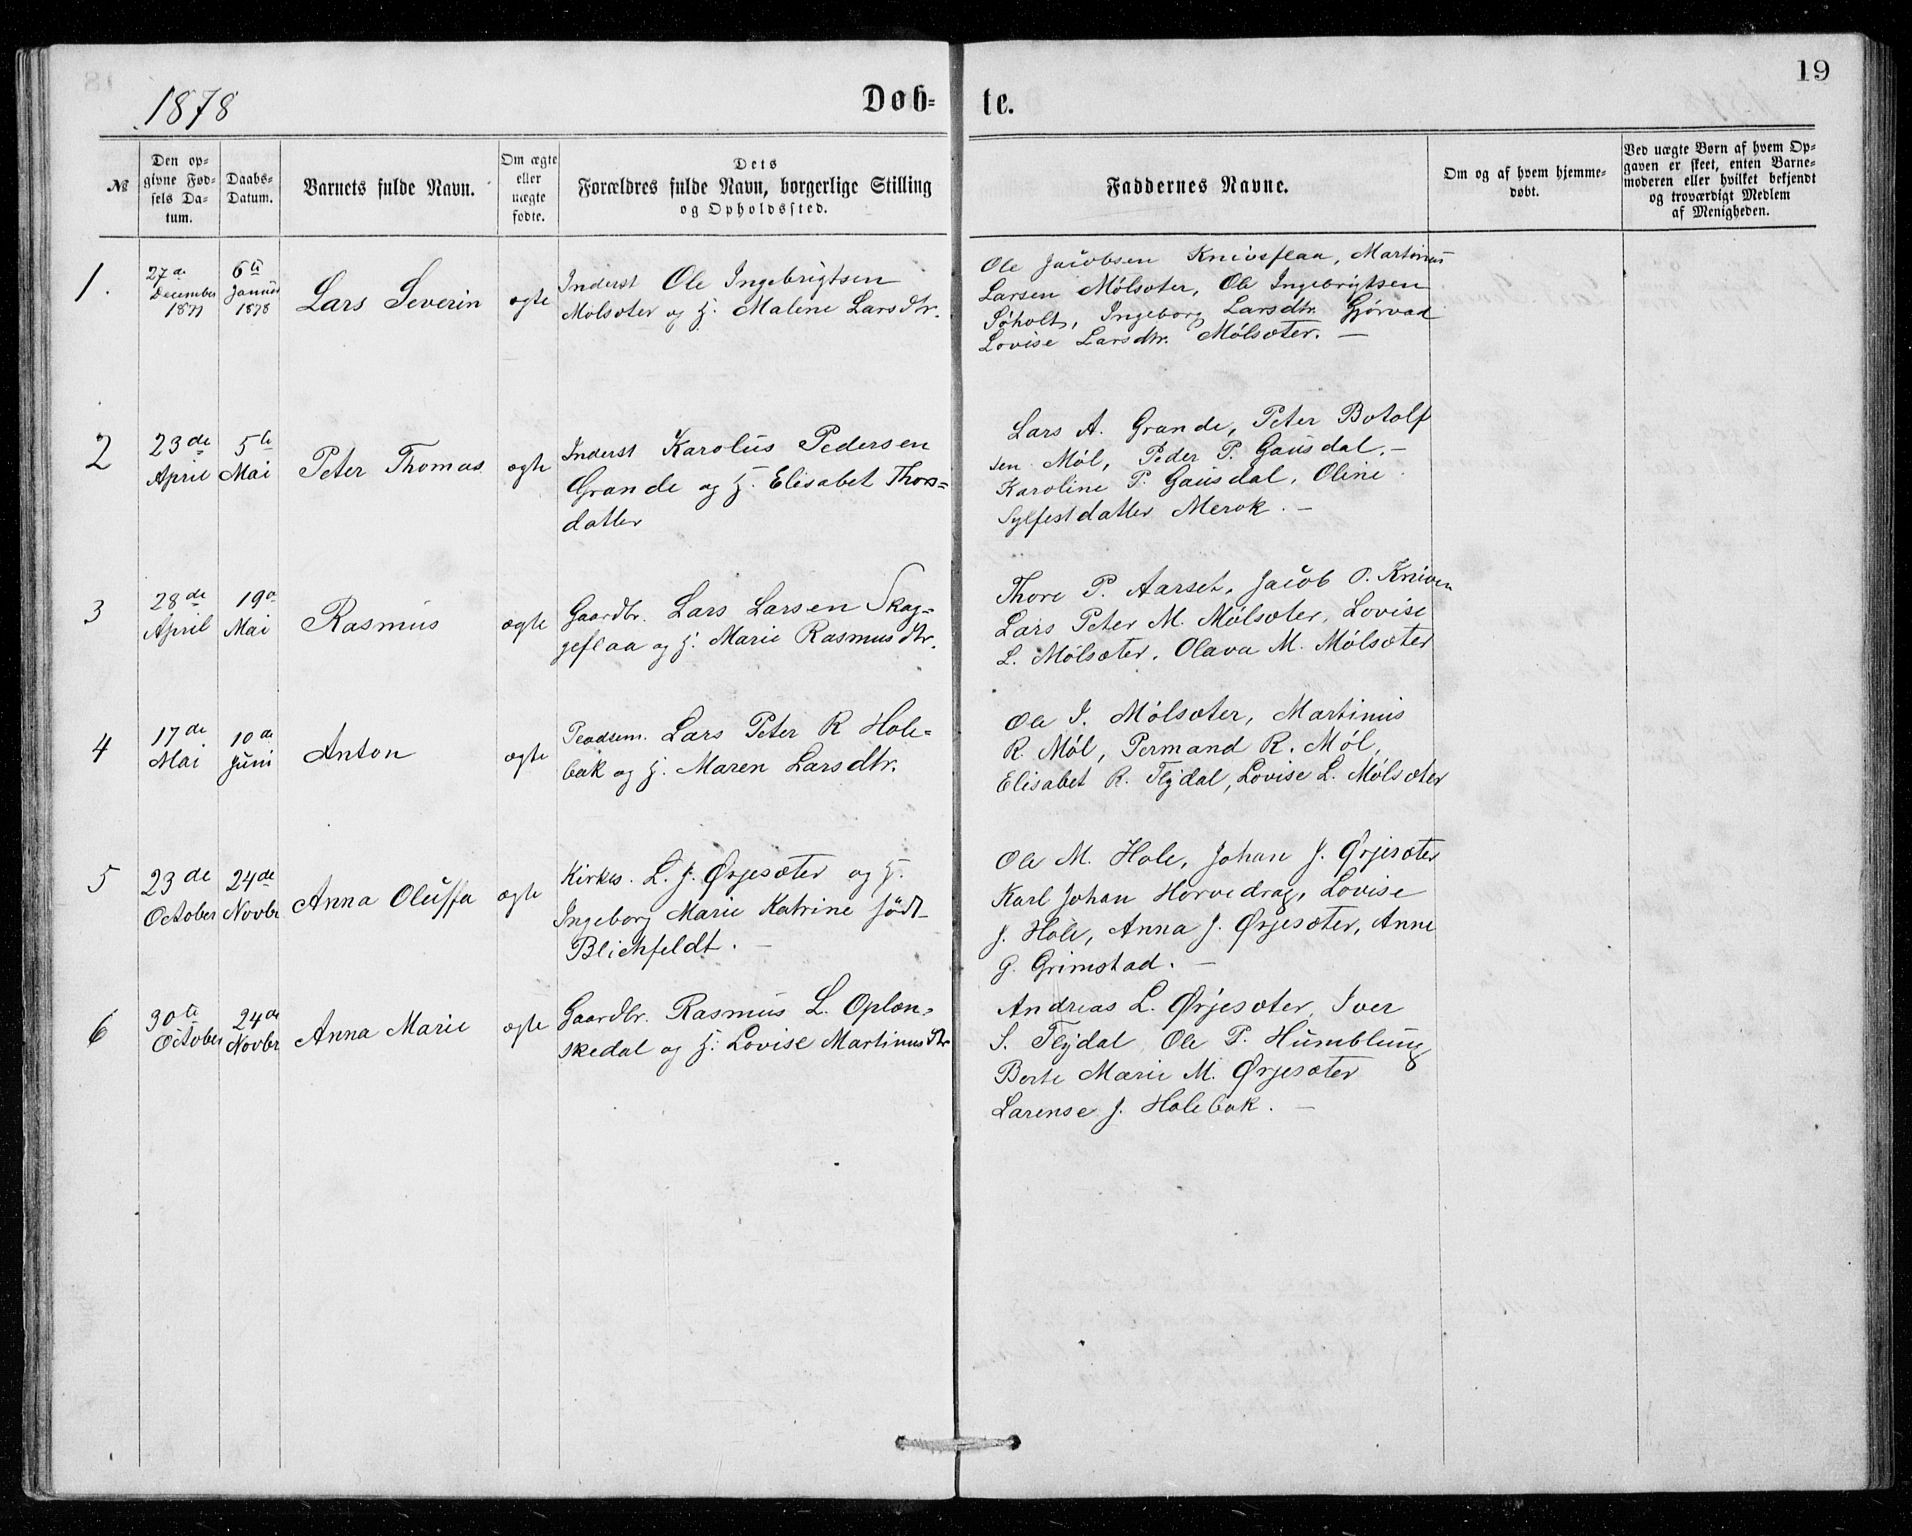 1878
Døb-
te.
19
№
Den op-
givne Fød-
sels Da-
tum.
Daabs-
Datum.
Barnets fulde Navn.
Om ægte
eller
uægte
fødte.
Dets
Forældres fulde Navn, borgerlige Stilling
og Opholdssted.
Faddernes Navne.
Om og af hvem hjemme-
døbt.
Ved uægte Børn af hvem Op-
gaven er skeet, enten Barne-
moderen eller hvilket bekjendt
og troværdigt Medlem
af Menigheden.
1.
27de
December
1877
6te
Januar
1878
Lars Severin
ægte
Inderst Ole Ingebrigtsen
Molsæter og H. Malene Larsdtr.
Ole Jacobsen Knivsflaa, Martinus
Larsen Mølsæter, Ole Ingebrigtsen
Søholt, Ingeborg Larsdtr. Gjørvad
Lovise Larsdtr. Mølsæter. —
2
23de
April
5te
Mai
Peter Thomas
ægte
Inderst Karolus Pedersen
Grande og H. Elisabet Thors=
datter
Lars A. Grande, Peter Botolf
sen Møl, Peder P. Gausdal. —
Karoline P. Gausdal, Oline
Sylfestdatter Merok. —
3
28de
April
19de
Mai
Rasmus
ægte
Gaardbr. Lars Larsen Skag=
geflaa og H. Marie Rasmusdtr.
Thore P. Aarset, Jacob O. Kniven
Lars Peter M. Mølsæter, Lovise
L. Mølsæter, Olava M. Mølsæter
4
17de
Mai
10de
Juni
Anton
ægte
Pladsem. Lars Peter R Hole=
bak og H. Maren Larsdtr.
Ole I. Mølsæter, Martinus
R. Møl, Permand R. Møl,
Elisabet R. Flydal, Lovise L. Mølsæter
5
23de
October
24de
Novbr
Anna Oluffa
ægte
Kirkes. L. J. Ørjesæter og H.
Ingeborg Marie Katrine født
Blichfeldt. —
Ole M. Hole, Johan J. Ørjesæter
Karl Johan Horvedrag, Lovise
J. Hole, Anna J. Ørjesæter, Anne
G. Grimstad. —
6
30te
October
24de
Novbr
Anna Marie
ægte
Gaardbr. Rasmus L. Oplæn=
skedal og H. Lovise Martinusdtr
Andreas L. Ørjesæter, Iver
S. Flydal Ole P. Humblung
Berte Marie M. Ørjesæter
Larense J. Holebak. —